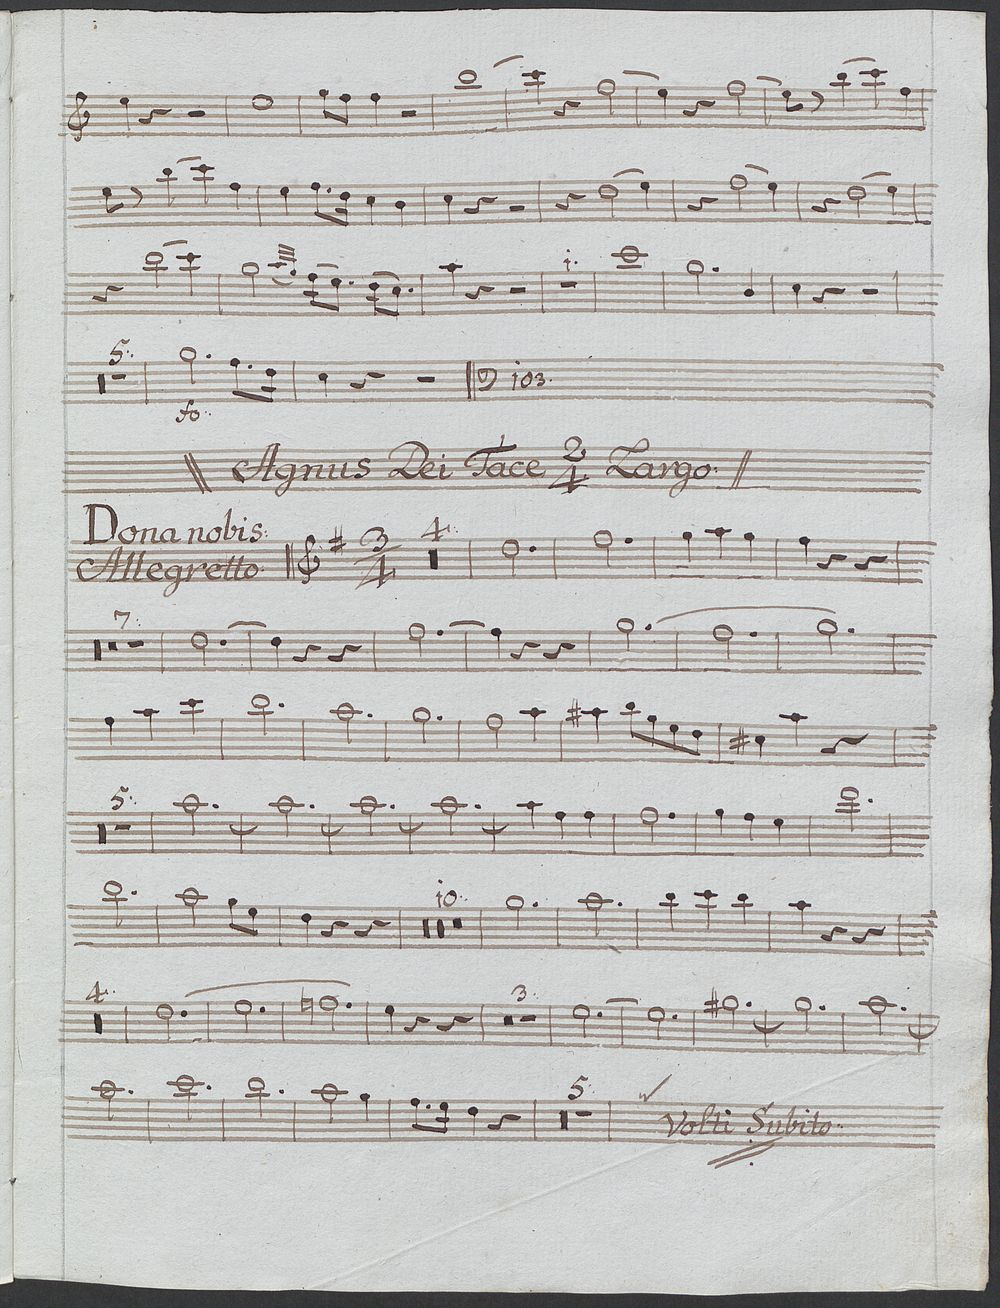 1.
5.
fo.
103.
Agnus Dei Tace 2/4 Largo.
Dona nobis.
Allegretto
3/4
4.
7.
5.
10.
4.
3.
5.
Volti Subito.